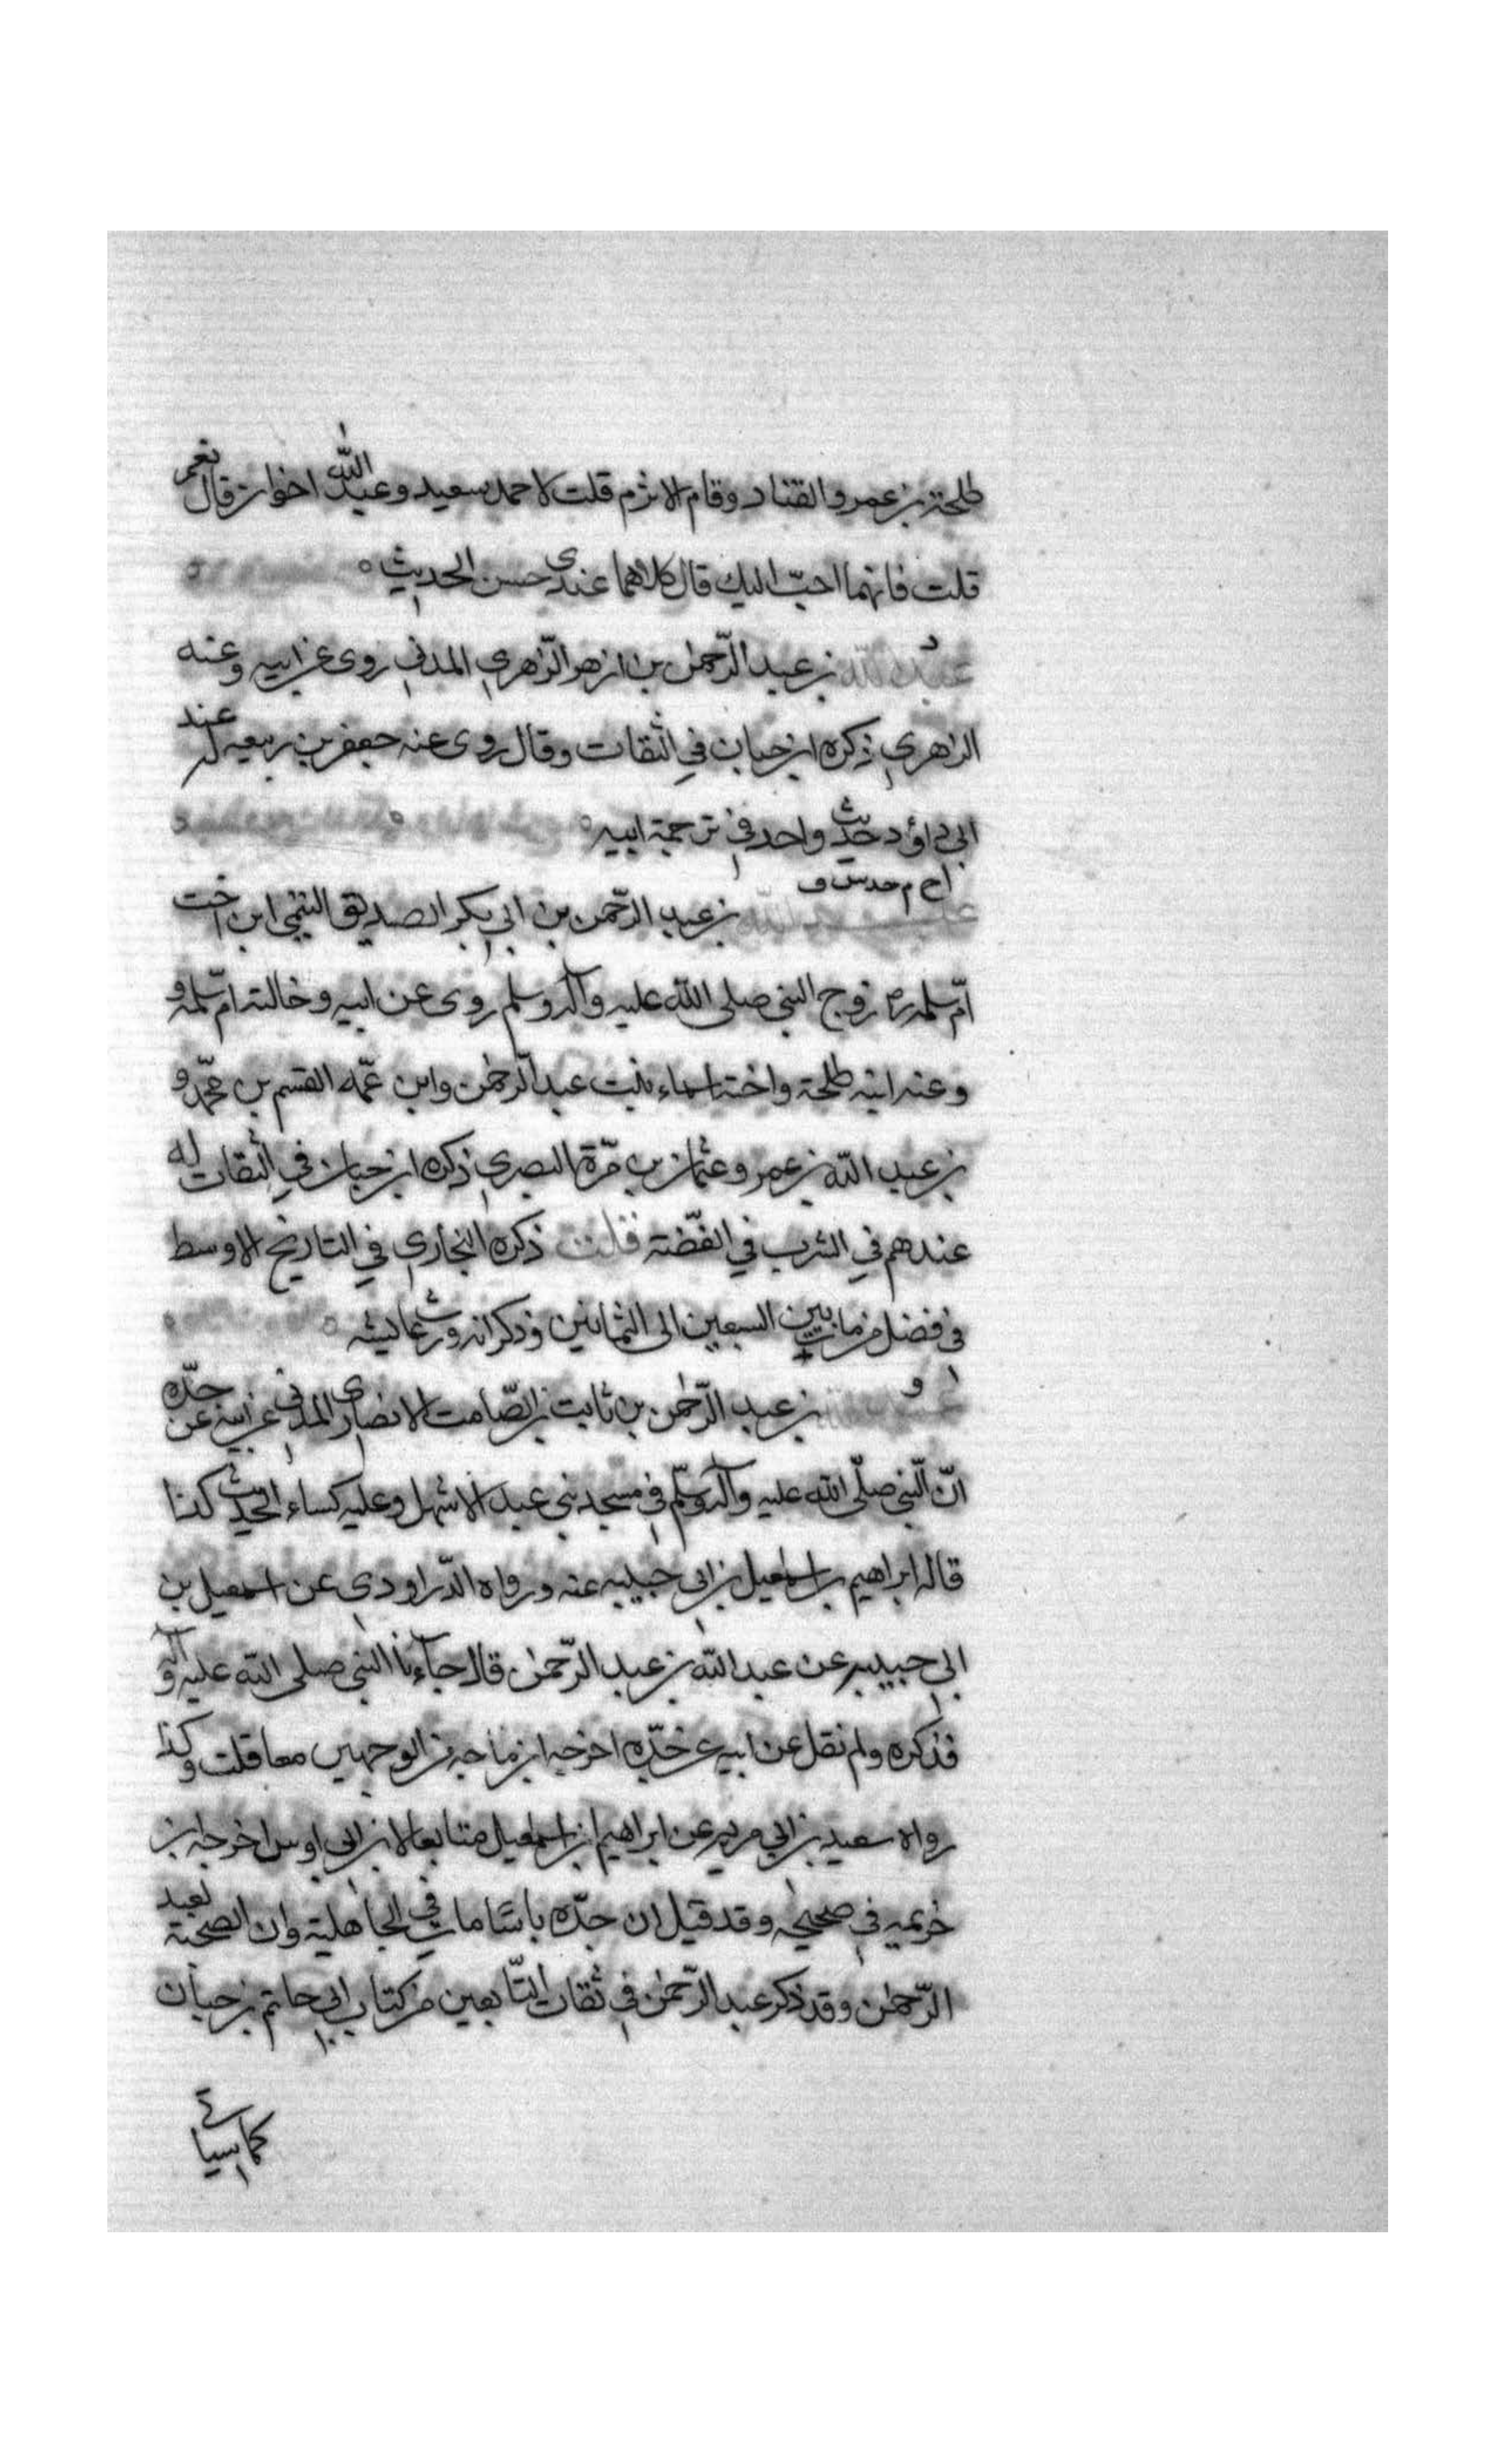 طلحة بن عمرو القناد وقام الاثرم قلت لاحمد سعيد وعبد الله اخوان قال نعم
قلت فايهما احبّ اليك قال كلاهما عندى حسن الحديث
د
عبد الله بن عبد الرّحمن بن ازهر الزّهري المدني روى عن ابيه وعنه
الزهري ذكره ابن حبان في الثقات وقال روى عنه جعفر بن ربيعه له عند
ابي داؤد حديث واحد في ترجمة ابيه
عبد الله بن عبد الرّحمن بن ابي بكر الصديق التيمي ابن اخت
امّ سلمة زوج النبي صلى الله عليه وآله وسلم روى عن ابيه وخالته امّ سلمة و
وعنه ابنه طلحة واخته اسماء بنت عبد الرحمن وابن عمّه القسم بن محمّد و
بن عبد الله بن عمر وعثمان بن مرّة البصري ذكره ابن حبان في الثقات له
عندهم في الشرب في الفضّة قلت ذكره البخاري في التاريخ الاوسط
في فضل من مات بين السبعين الى الثمانين وذكر انه ورث عائشه
عبد الله بن عبد الرّحمن بن ثابت بن الصّامت الانصارى المدني عن ابيه عن جدّه
انّ النّبي صلّى الله عليه وآله وسلّم في مسجد بني عبد الاشهل وعليه كساء الحديث كذا
قاله ابراهيم بن اسمعيل بن ابي حبيبه عنه ورواه الدّراوردي عن اسمعيل بن
ابي حبيبه عن عبد الله بن عبد الرّحمن قال جآءنا النبي صلى الله عليه وآله
فذكره ولم نقل عن ابيه عن جدّه اخرجه ابن ماجه من الوجهين معا قلت وكذا
رواه سعيد بن ابي مريم عن ابراهيم بن اسمعيل متابعا لابن ابي اويس اخرجه ابن
خزيمه في صحيحه وقد قيل ان جدّه ثابتا مات في الجاهلية وان الصحبة لعبد
الرّحمن وقد ذكر عبد الرّحمن في ثقات التّابعين من كتاب ابي حاتم بن حبان